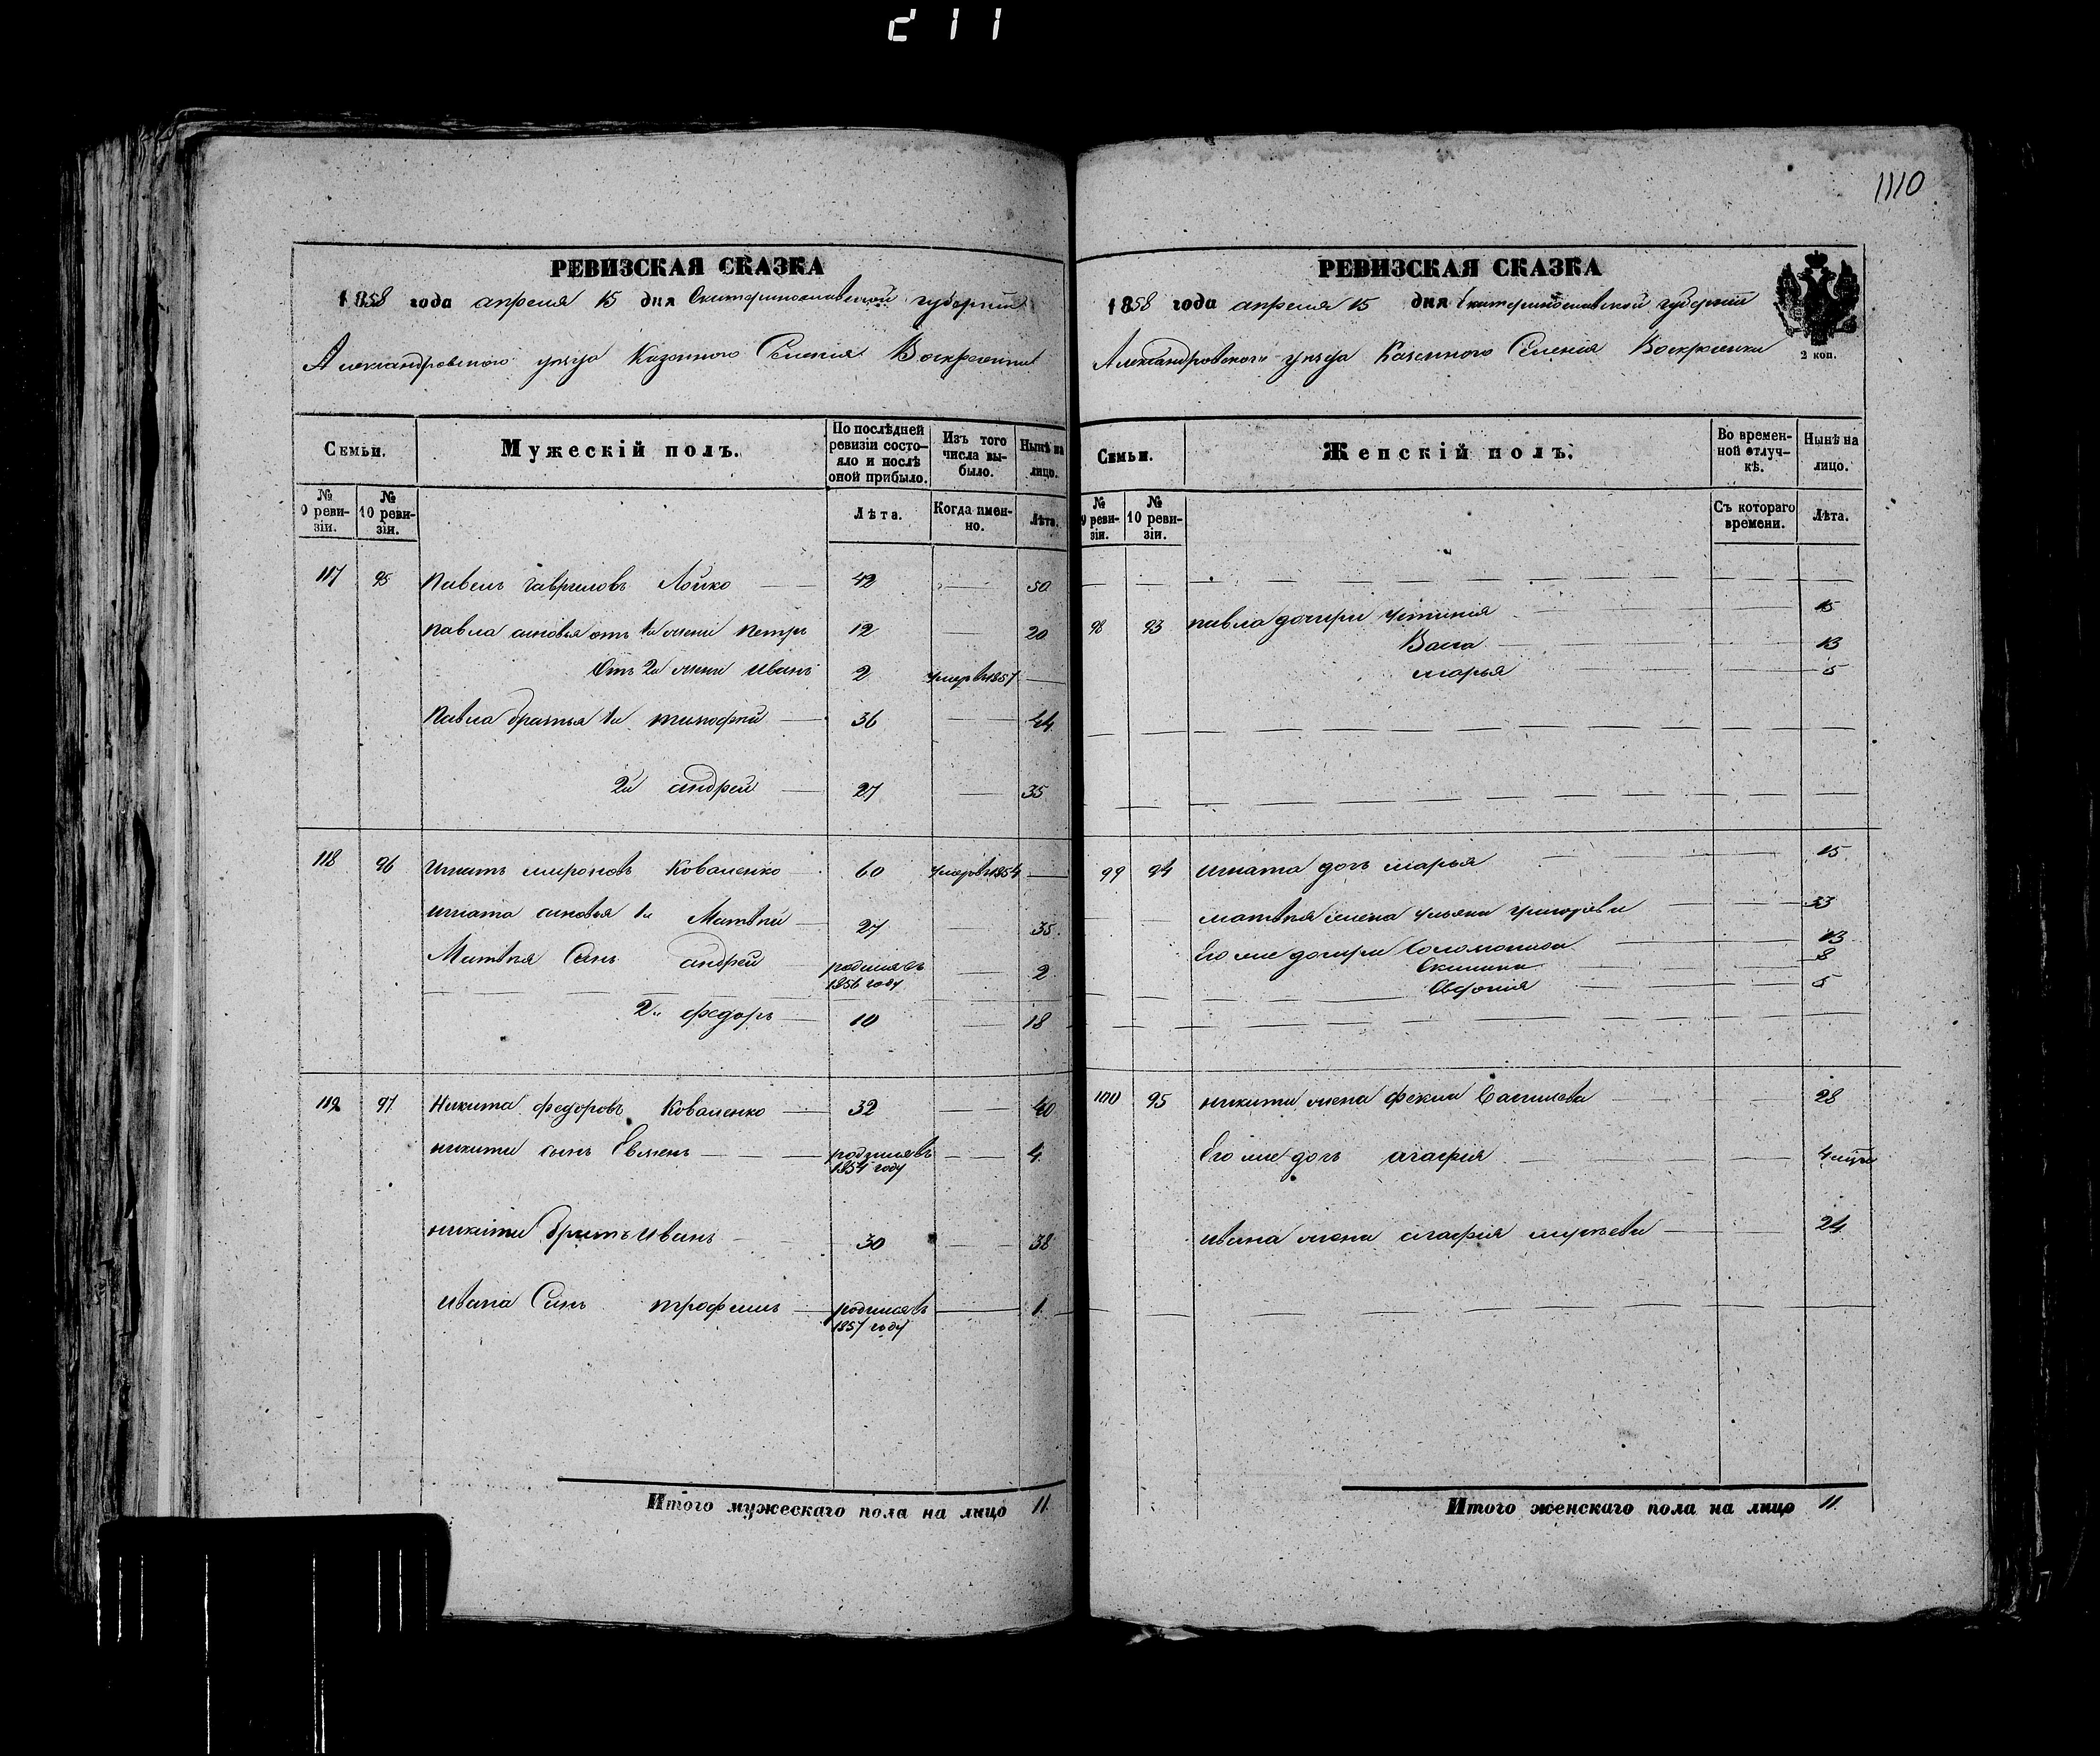 211
1110
РЕВИЗСКАЯ СКАЗКА
1858 года апреля 15 дня Екатеринославской губернии
Александровского уезда Казенного Селения Воскресенки
Семьи.
Мужескій полъ.
По послѣдней ревизіи состо-яло и послѣ оной прибыло.
Изъ того числа вы-было.
Нынѣ на лицо.
№ 9 реви-зіи.
№ 10 реви-зіи.
Лѣта.
Когда имен-но.
Лѣта.
117 95 Павелъ Гавриловъ Лойко 42 50
Павла синовья отъ 1й жени Петръ 12 20
Отъ 2й жени Иванъ 2 умер в 1857
Павла братья 1й тимофей 36 44
2й андрей 27 35
118 96 Игнатъ мироновъ Коваленко 60 умер в 1854
игната синовья 1й Матвей 27 35
Матвея Синъ андрей родился в 1856 году 2
2й федоръ 10 18
119 97 Никита федоровъ Коваленко 32 40
никити сынъ Евменъ родился в 1854 году 4
никити братъ Иванъ 30 38
ивана Синъ трофимъ родился в 1857 году 1
Итого мужескаго пола на лицо 11
РЕВИЗСКАЯ СКАЗКА
1858 года апреля 15 дня Екатеринославской губернии
Александровского уезда Казенного Селения Воскресенки
2 коп.
Семьи.
Женскій полъ.
Во времен-ной отлуч-кѣ.
Нынѣ на лицо.
№ 9 реви-зіи.
№ 10 реви-зіи.
Съ котораго времени.
Лѣта.
98 93 павла дочери устиния 15
Васа 13
марья 5
99 94 игната дочь марья 15
матвея жена ульяна григорева 33
Его же дочери Соломония 13
Акилина 8
Евдокия 5
100 95 никити жена фекла Василева 28
Его же дочь агафия 4 мця
ивана жена агафия 24
Итого женскаго пола на лицо 11